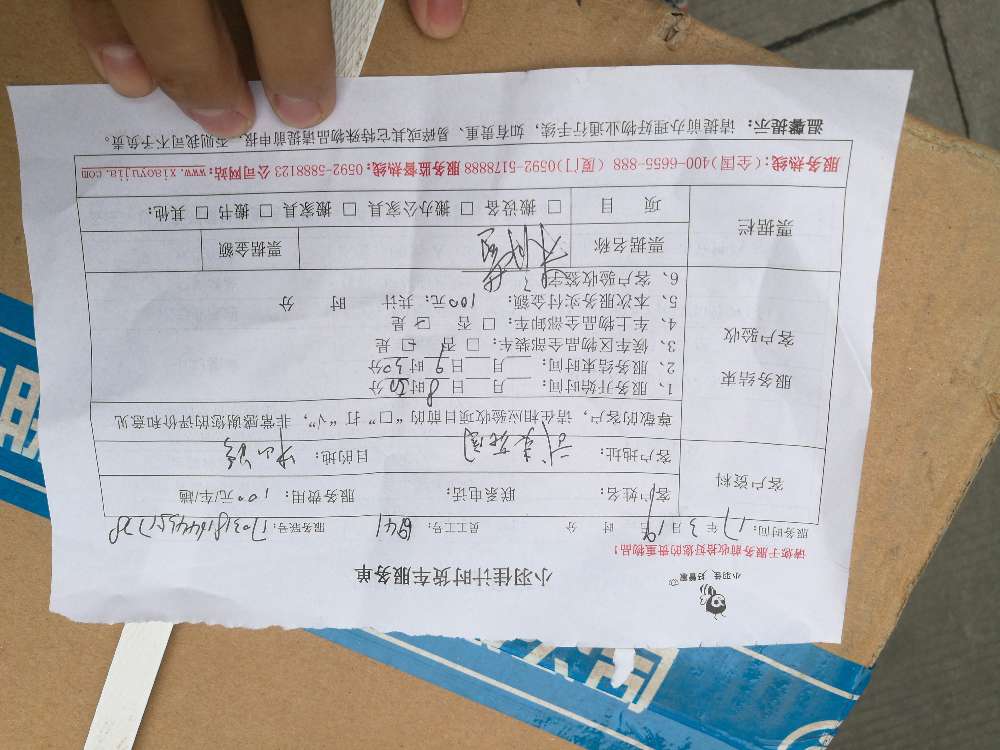 小羽佳.好管家
小羽佳计时货车服务单
请您于服务前收拾好您的贵重物品！
服务时间：17年3月19日 时 分 员工工号：6941 服务联号：
客户资料
客户姓名： 联系电话： 服务费用：100元/车/趟
客户地址： 目的地：中山路
服务结束
客户验收
尊敬的客户，请在相应验收项目前的“□”打“√”，非常感谢您的评价和意见
1、服务开始时间：___月___日8时50分
2、服务结束时间：___月___日9时30分
3、候车区物品全部车装：□ 否 □ 是
4、车上物品全部卸车：□ 否 ☑ 是
5、本次服务实付金额：100元；共计 时 分
6、客户验收签字：
票据栏
票据名称 票据金额
项 目 □ 搬设备 □ 搬办公家具 □ 搬家具 □ 搬书 □ 其他：
服务热线：（全国）400-6655-888（厦门）0592-5178888 服务监督热线：0592-5888123 公司网站：www.xiaoyujia.com
温馨提示：请提前办理好物业通行手续，如有贵重、易碎或其它特殊物品请提前申报，否则我司不予负责。